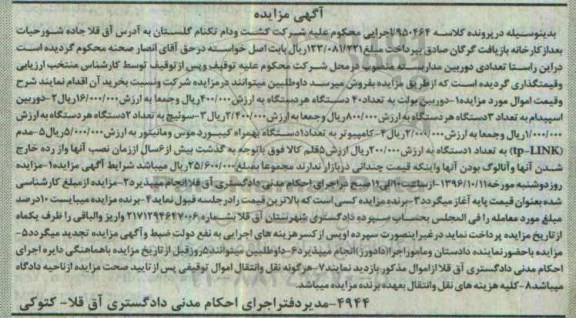 آگهی مزایده
بدینوسیله در پرونده کلاسه ۹۵۰۴۶۴/اجرایی محکوم علیه شرکت کشت ودام تکنام گلستان به آدرس آق قلا جاده شورحیات
بعدازکارخانه بازیافت گرگان صادق بپرداخت مبلغ ۱۲۳/۰۸۱/۲۲۱ریال بابت اصل خواسته درحق آقای انصار صحنه محکوم گردیده است
دراین راستا تعدادی دوربین مداربسته منصوب درمحل شرکت محکوم علیه توقیف وپس ازتوقیف توسط کارشناس منتخب ارزیابی
وقیمتگذاری گردیده است که ازطریق مزایده بفروش میرسد داوطلبین میتوانند درمزایده شرکت ونسبت بخرید آن اقدام نمایند شرح
وقیمت اموال مورد مزایده ۱-دوربین بولت به تعداد۴۰ دستگاه هردستگاه به ارزش ۴۰۰/۰۰۰ریال وجمعا به ارزش ۱۶/۰۰۰/۰۰۰ریال۲-دوربین
اسپیدام به تعداد ۳دستگاه هردستگاه به ارزش ۸۰۰/۰۰۰ریال وجمعا به ارزش ۲/۴۰۰/۰۰۰ریال ۳-سوئیچ به تعداد ۲دستگاه هردستگاه به ارزش
۱/۰۰۰/۰۰۰ریال وجمعا به ارزش ۲/۰۰۰/۰۰۰ریال ۴-کامپیوتر به تعداد۱دستگاه بهمراه کیبورد موس ومانیتور به ارزش ۵/۰۰۰/۰۰۰ریال ۵-مدم
(tp-LINK) به تعداد ۱دستگاه به ارزش ۲۰۰/۰۰۰ریال ارزش ۵قلم کالا فوق باتوجه به گذشت بیش از۶سال اززمان نصب آنها واز رده خارج
شدن آنها وآنالوگ بودن آنها واینکه قیمت چندانی دربازار ندارند مجموعا بمبلغ ۲۵/۶۰۰/۰۰۰ریال میباشد شرایط آگهی مزایده ۱-مزایده
روزدوشنبه مورخه ۱۳۹۶/۱۰/۱۱ ازساعت ۱۰الی۱۲صبح دراجرای احکام مدنی دادگستری آق قلا انجام میپذیرد ۲-مزایده ازمبلغ کارشناسی
شده بعنوان قیمت پایه آغاز میگردد ۳-برنده مزایده کسی است که بالاترین قیمت رادرجلسه قبول نماید ۴-برنده مزایده میبایست ۱۰درصد
مبلغ مورد معامله را فی المجلس بحساب سپرده دادگستری شهرستان آق قلا بشماره ۲۱۷۱۲۹۴۶۲۷۰۰۶ واریز والباقی را ظرف یکماه
ازتاریخ مزایده پرداخت نماید درغیراینصورت سپرده اوپس از کسرهزینه های اجرایی به نفع دولت ضبط وآگهی مزایده تجدید میگردد ۵-
مزایده باحضورنماینده دادستان وماموراجرا(دادورز)انجام میپذیرد ۶-داوطلبین میتوانند۵روزقبل ازتاریخ مزایده باهماهنگی دایره اجرای
احکام مدنی دادگستری آق قلا ازاموال مذکور بازدید نمایند۷-هرگونه نقل وانتقال اموال توقیفی پس ازتایید صحت مزایده ازناحیه دادگاه
میباشد ۸-کلیه هزینه های نقل وانتقال بعهده برنده مزایده میباشد.
۴۹۴۴-مدیردفتراجرای احکام مدنی دادگستری آق قلا- کتوکی